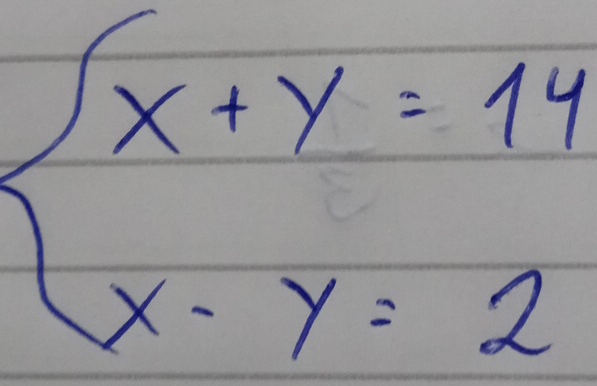 x + y = 14
x - y = 2